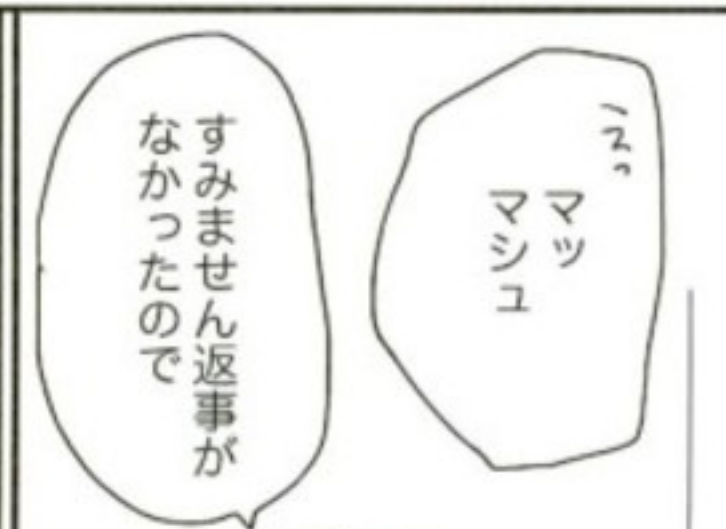 えっ
マッ
マシュ
すみません返事が
なかったので